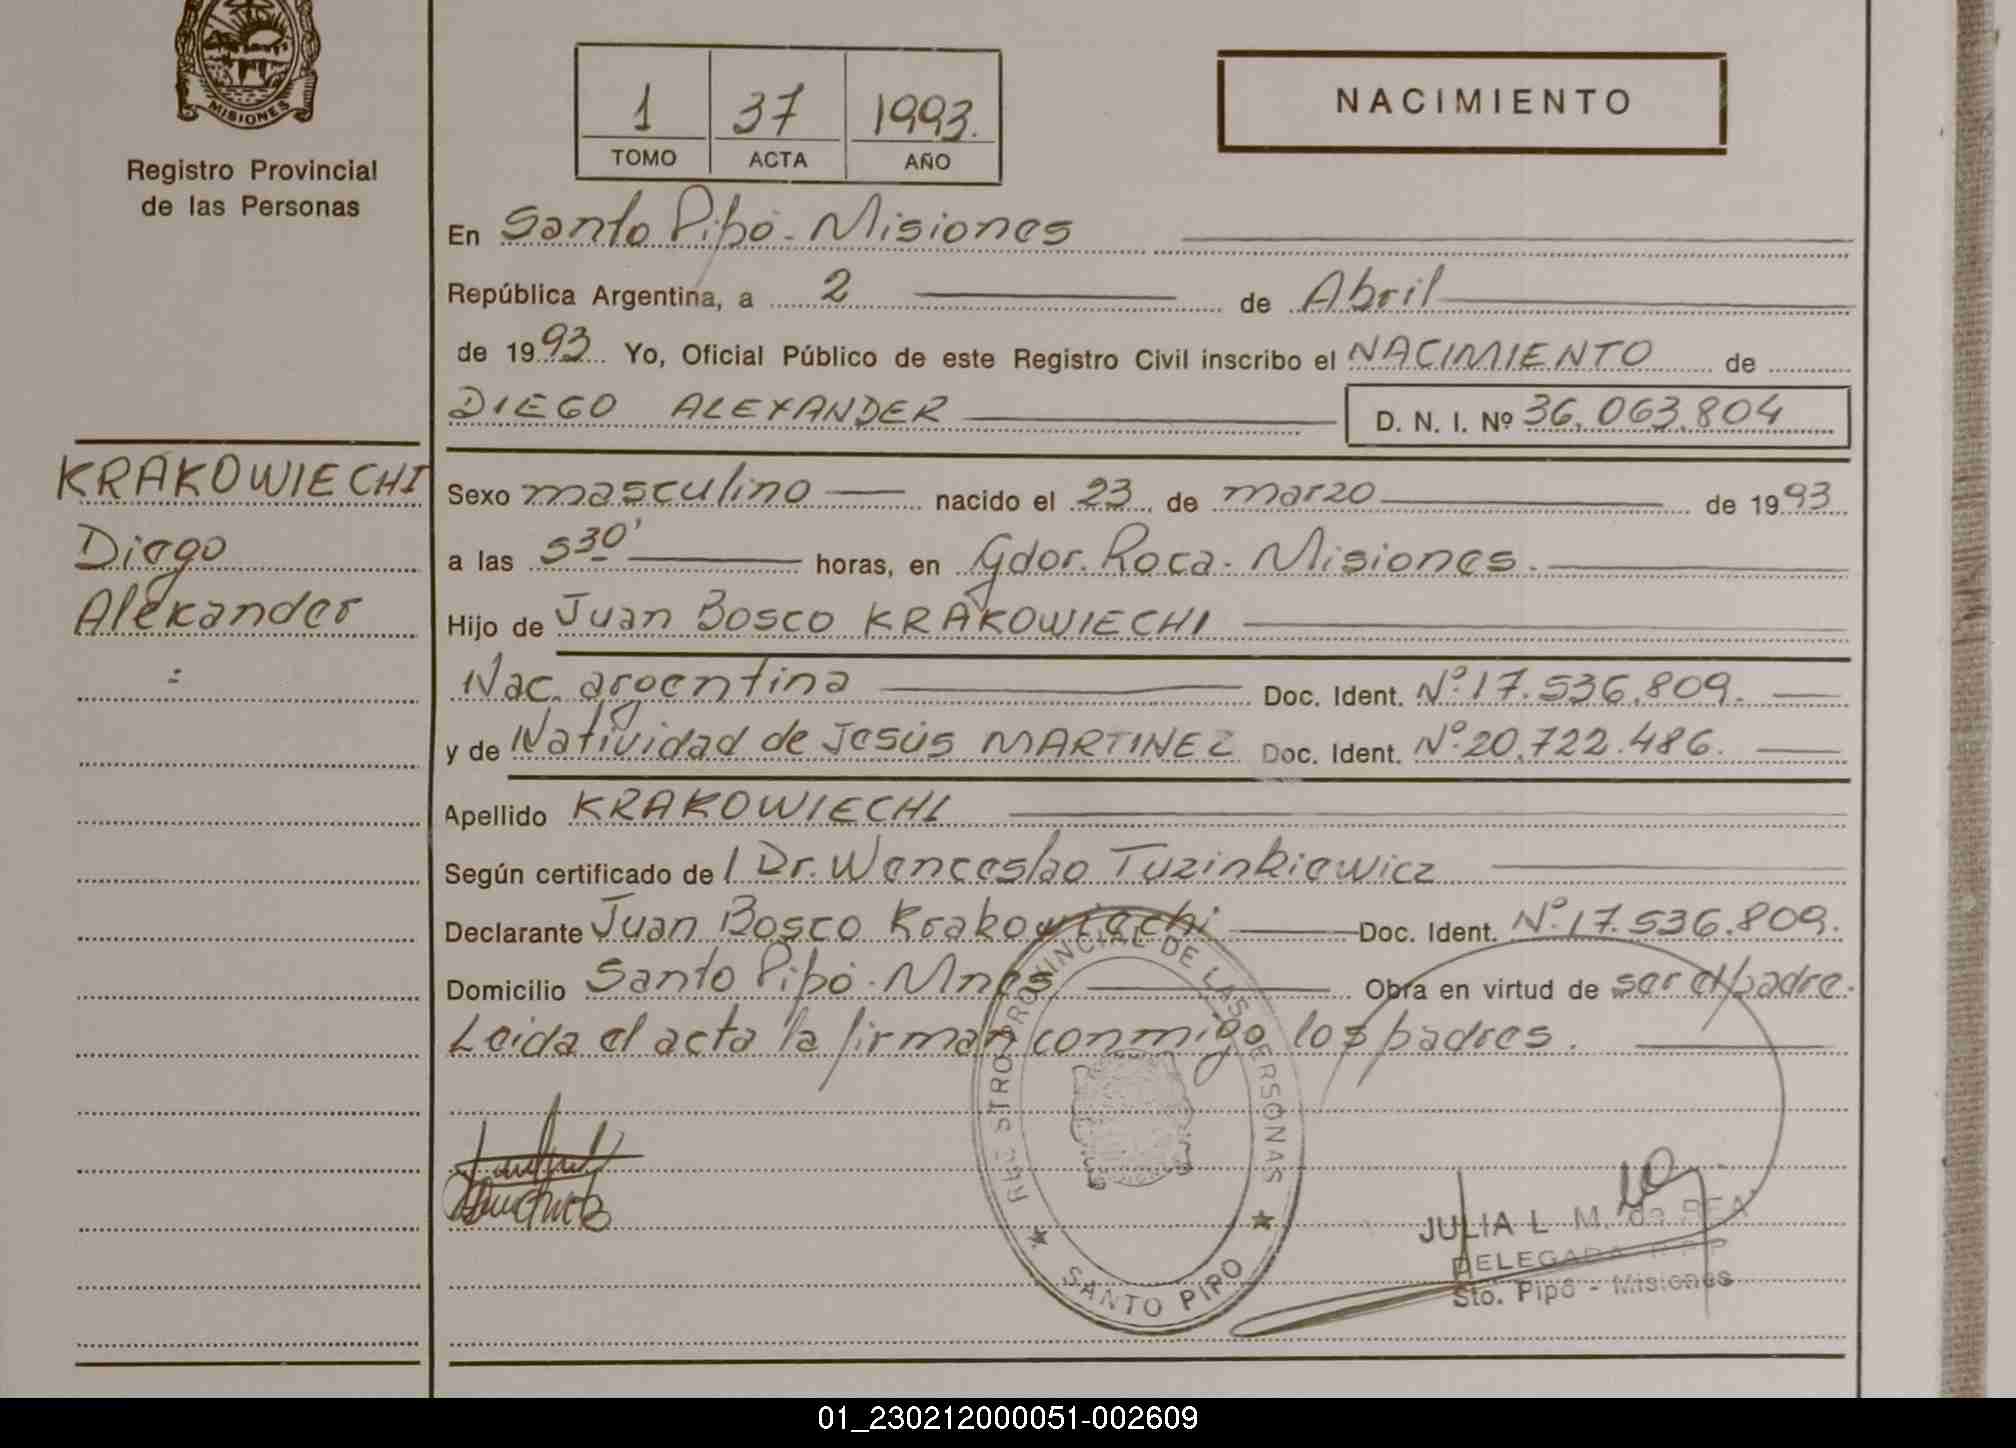 MISIONES
Registro Provincial
de las Personas
1 37 1993.
TOMO ACTA AÑO
NACIMIENTO
En Santo Pipó - Misiones
República Argentina, a 2 de Abril
de 1993 Yo, Oficial Público de este Registro Civil inscribo el NACIMIENTO de
DIEGO ALEXANDER D. N. I. Nº 36.063.804
KRAKOWIECHI
Diego
Alexander
Sexo masculino nacido el 23 de marzo de 1993
a las 530' horas, en Gdor. Roca - Misiones.
Hijo de Juan Bosco KRAKOWIECHI
Nac. argentina Doc. Ident. Nº 17.536.809.
y de Natividad de Jesús MARTINEZ Doc. Ident. Nº 20.722.486.
Apellido KRAKOWIECHI
Según certificado de l Dr. Wenceslao Tuzinkiewicz
Declarante Juan Bosco Krakowiechi Doc. Ident. Nº 17.536.809.
Domicilio Santo Pipó - Mnes Obra en virtud de ser el padre.
Leida el acta la firman conmigo los padres.
REGISTRO PROVINCIAL DE LAS PERSONAS
SANTO PIPO
JULIA L. M. de REA
DELEGADA R P P
Sto. Pipó - Misiones
01_230212000051-002609